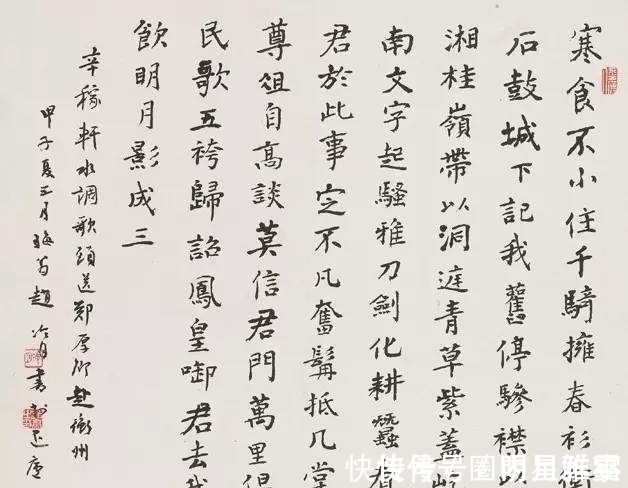 寒食不小住千騎擁春衫衡
石鼓城下記我舊停驂襟以
湘桂嶺帶以洞庭青草紫蓋屹
南文字起騷雅刀劍化耕蠶看
君於此事定不凡奮髯抵几堂
尊俎自高談莫信君門萬里但
民歌五袴歸詔鳳皇啣君去我
飲明月影成三
辛稼軒水調歌頭送鄭厚卿赴衡州
甲子夏五月 趙冷月書